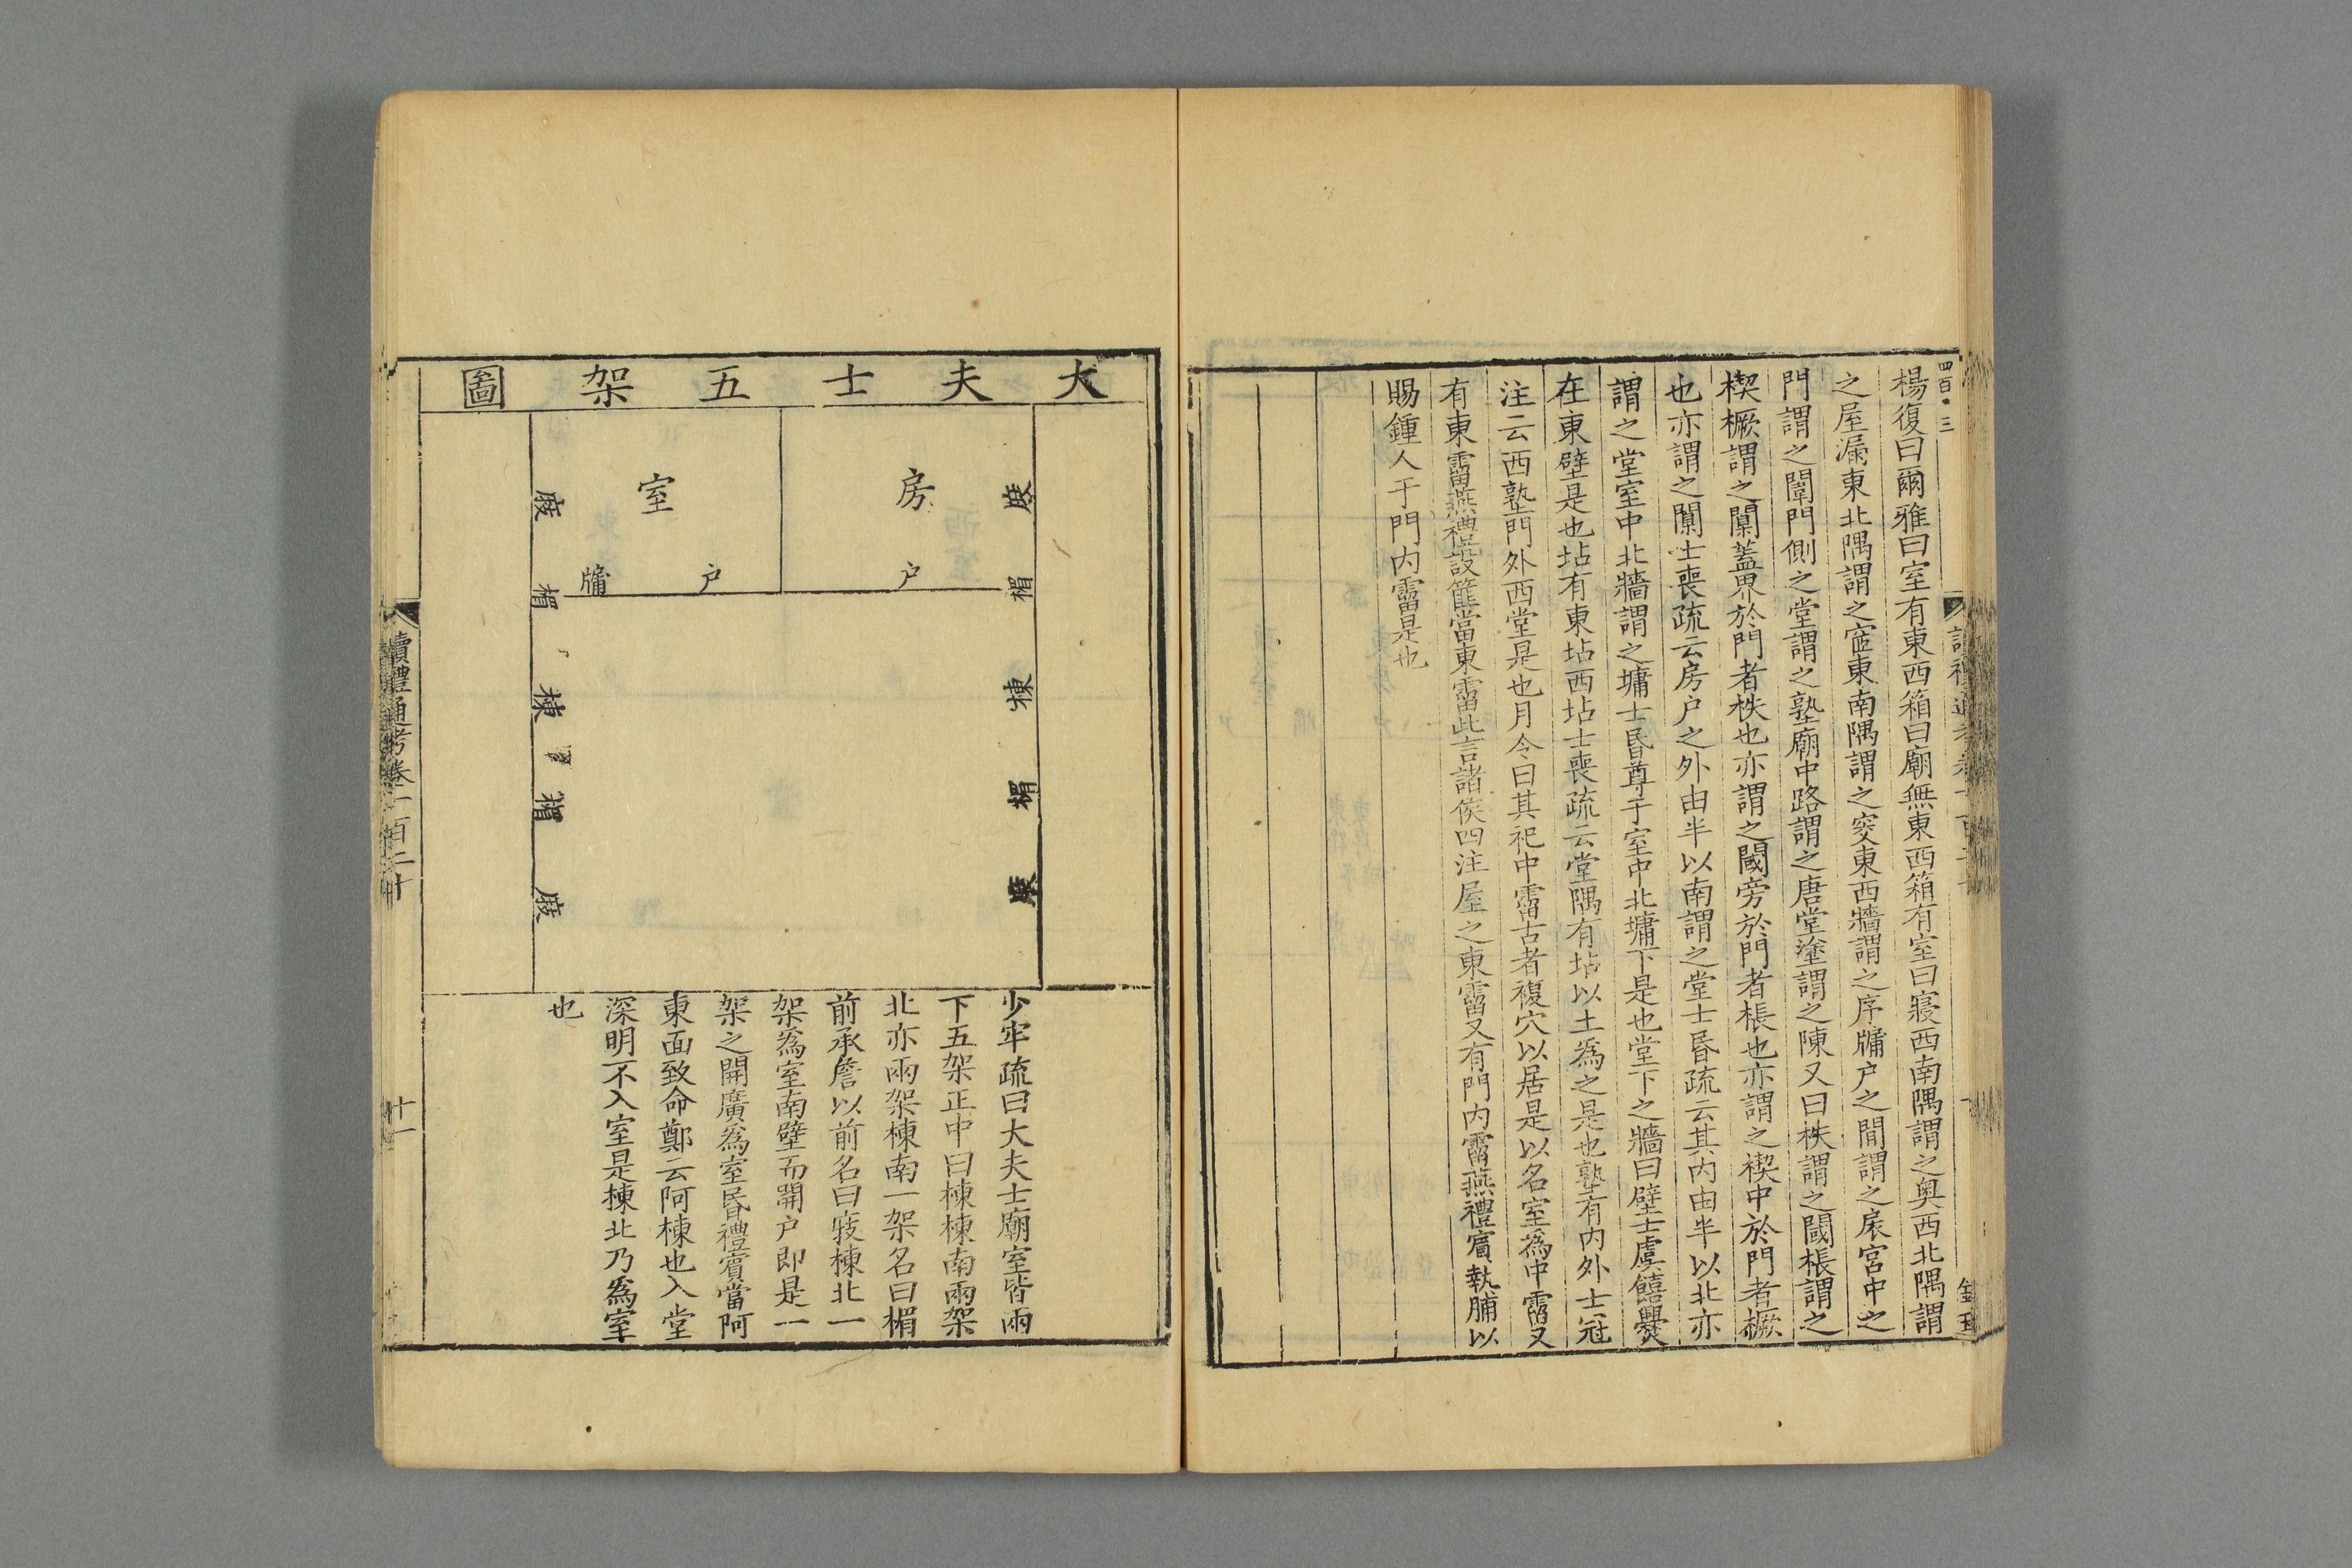 四百·三
楊復曰爾雅曰室有東西箱曰廟無東西箱有室曰寢西南隅謂之奥西北隅謂
之屋漏東北隅謂之宧東南隅謂之窔東西牆謂之序牖户之間謂之扆宮中之
門謂之闈門側之堂謂之塾廟中路謂之唐堂塗謂之陳又曰柣謂之閾棖謂之
楔橛謂之闑蓋界於門者柣也亦謂之閾旁於門者棖也亦謂之楔中於門者橛
也亦謂之闑士喪疏云房户之外由半以南謂之堂士昏疏云其内由半以北亦
謂之堂室中北牆謂之墉士昏尊于室中北墉下是也堂下之牆曰壁士虞饎爨
在東壁是也坫有東坫西坫士喪疏云堂隅有坫以土為之是也塾有内外士冠
注云西塾門外西堂是也月令曰其祀中霤古者複穴以居是以名室為中霤又
有東霤燕禮設篚當東霤此言諸侯四注屋之東霤又有門内霤燕禮賓執脯以
賜鍾人于門内霤是也
大夫士五架圖
房
室
户
户
牖
庪
楣
棟
楣
庪
庪
楣
棟
楣
庪
少牢疏曰大夫士廟室皆兩
下五架正中曰棟棟南兩架
北亦兩架棟南一架名曰楣
前承簷以前名曰庪棟北一
架為室南壁而開户即是一
架之開廣為室昏禮賓當阿
東面致命鄭云阿棟也入堂
深明不入室是棟北乃為室
也
讀禮通考卷一百二十
十一